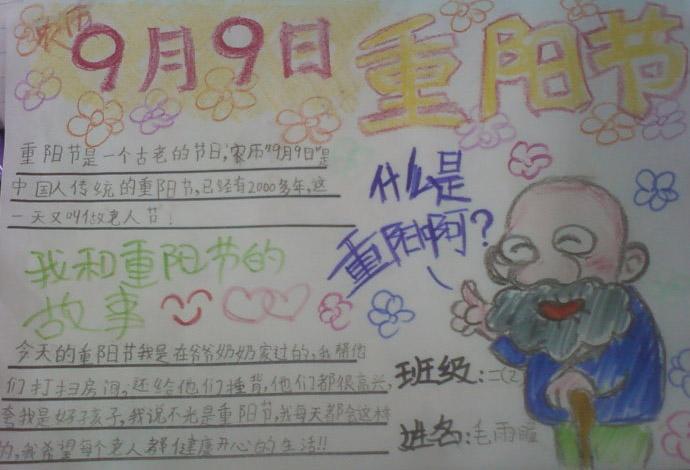 农历
9月9日 重阳节
重阳节是一个古老的节日,农历"9月9日"是
中国人传统的重阳节,已经有2000多年,这
一天又叫做老人节!
什么是
重阳啊?
我和重阳节的
故事
今天的重阳节我是在爷爷奶奶家过的,我帮他
们打扫房间,还给他们捶背,他们都很高兴,
夸我是好孩子,我说不光是重阳节,我每天都会这样
为,我希望每个老人都健康开心的生活!!
班级:二(2
姓名:毛雨暄